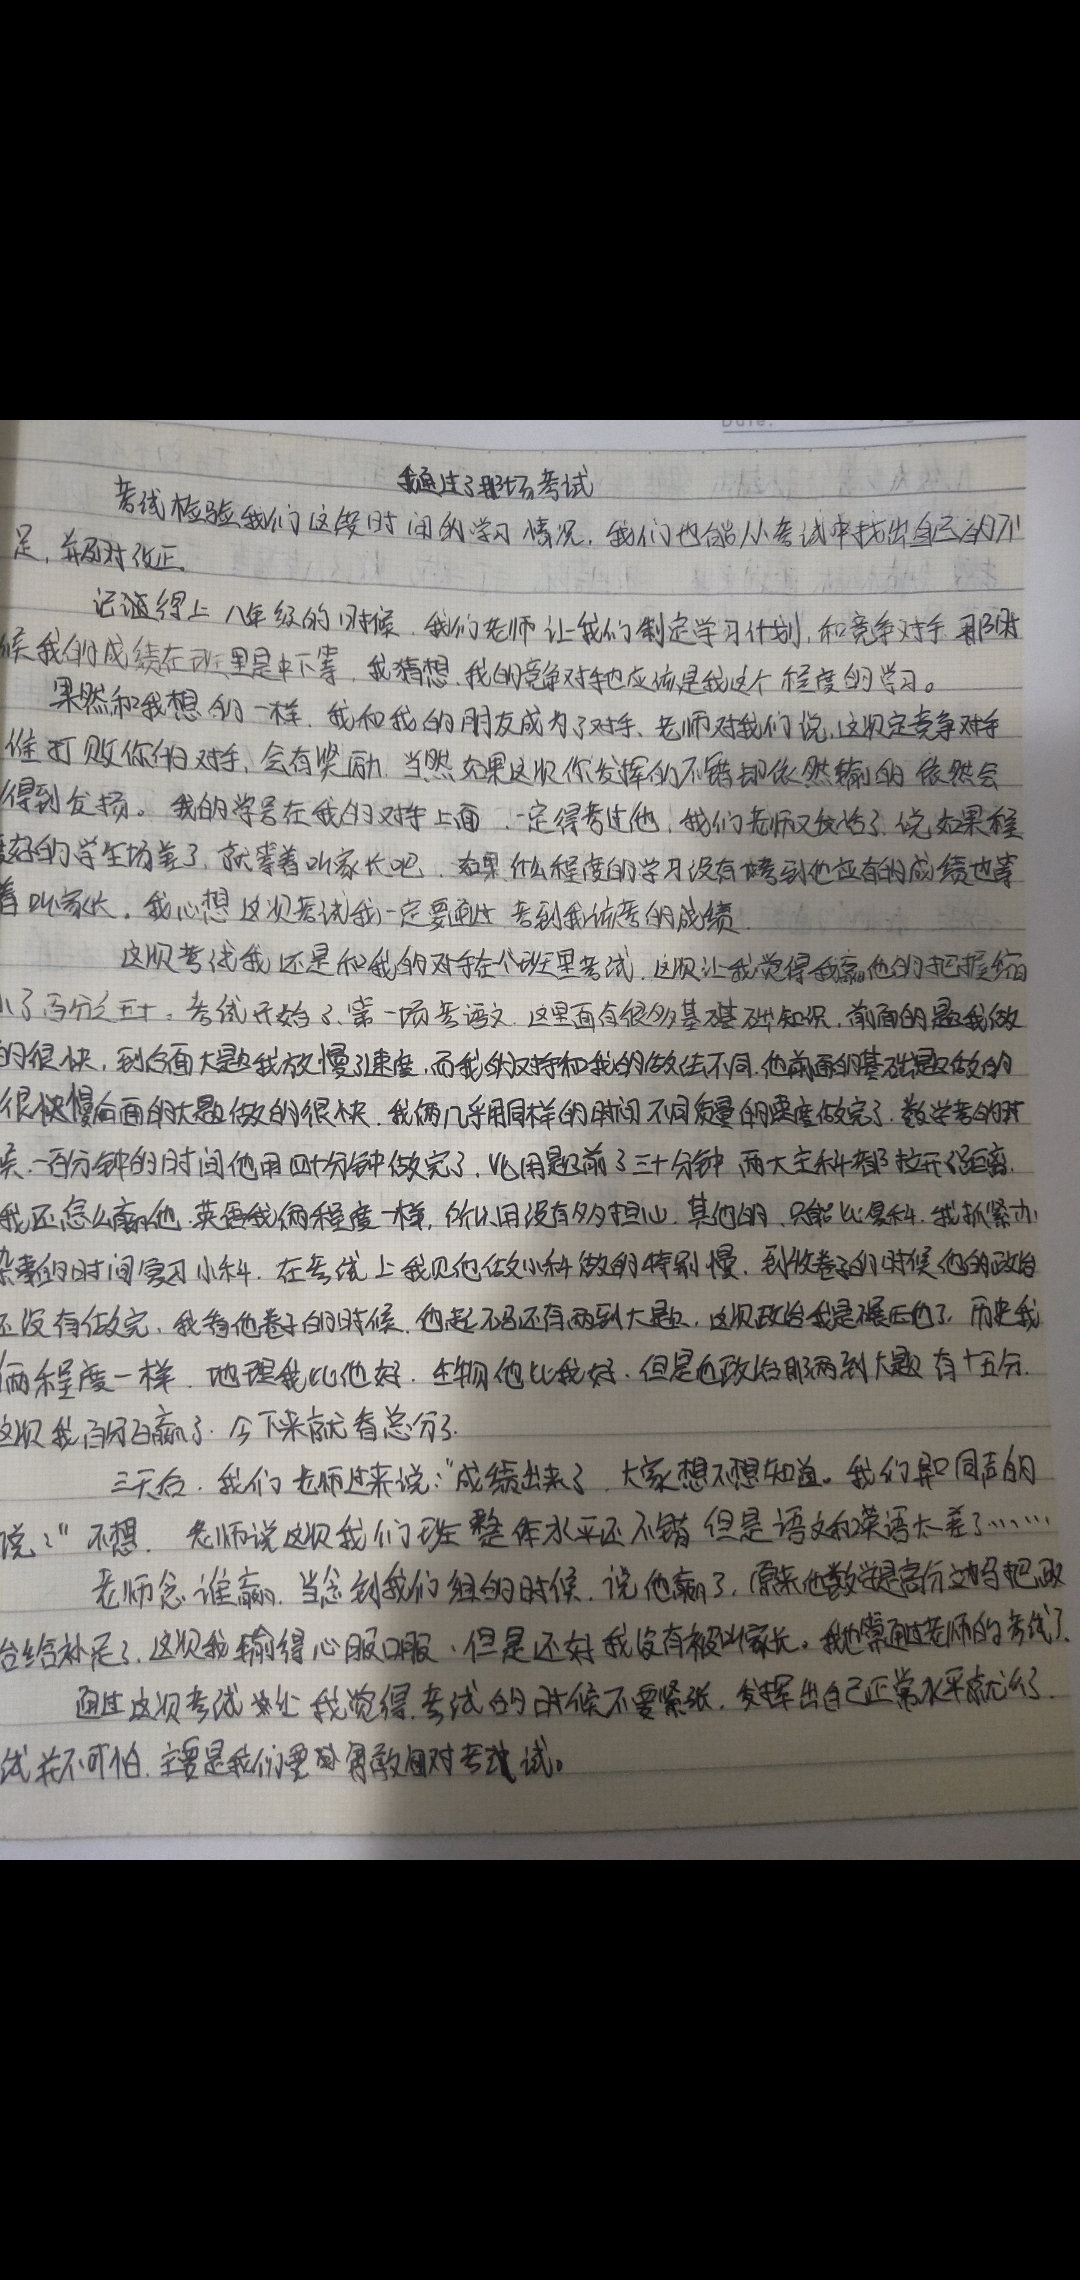 Date:
我通过了那场考试
考试检验我们这段时间的学习情况，我们也能从考试中找出自己的不
足，并及时改正。
记得上八年级的时候，我们老师让我们制定学习计划，和竞争对手，那时
候我的成绩在班里是中下等，我猜想，我的竞争对手也应该是我这个程度的学习。
果然和我想的一样，我和我的朋友成为了对手，老师对我们说，这次定竞争对手
谁打败你们的对手，会有奖励，当然如果这次你发挥的不错却依然输的 依然会
得到发扬。我的学号在我的对手上面，一定得考过他，我们老师又放话了，说，如果程
度好的学生考差了，就等着叫家长吧，如果什么程度的学习没有考到他应有的成绩也等
着叫家长。我心想这次考试我一定要通过 考到我该考的成绩。
这次考试我还是和我的对手在个班里考试，这次让我觉得我赢他的把握缩
小了百分之五十。考试开始了，第一项考语文，这里面有很多基础知识，前面的题我做
的很快，到后面大题我放慢了速度，而我的对手和我的做法不同，他前面的基础题做的
很慢后面的大题做的很快，我俩几乎用同样的时间不同质量的速度做完了，数学考的时
候，一百分钟的时间他用四十分钟做完了，比用提前了三十分钟，两大主科都拉开了距离，
我还怎么赢他，英语我俩程度一样，所以用没有多多担心，其他的，只能比小科，我抓紧
的时间复习小科，在考试上我见他做小科做的特别慢，到收卷子的时候他的政治
还没有做完，我看他卷子的时候，他起码还有两到大题，这次政治我是碾压他了，历史我
俩程度一样，地理我比他好，生物他比我好，但是他政治那两到大题有十五分，
这次我百分百赢了，今下来就看总分了。
三天后，我们老师过来说：“成绩出来了，大家想不想知道。我们异口同声的
说：”不想，老师说这次我们班整体水平还不错但是语文和英语太差了……
老师念谁赢，当念到我们组的时候，说他赢了，原来他数学是高分边把政
治给补足了，这次我输得心服口服，但是还好我没有被叫家长。我也算通过老师的考试了，
通过这次考试 我觉得，考试的时候不要紧张，发挥出自己正常水平就行了，
试并不可怕，主要是我们要勇敢面对考试。